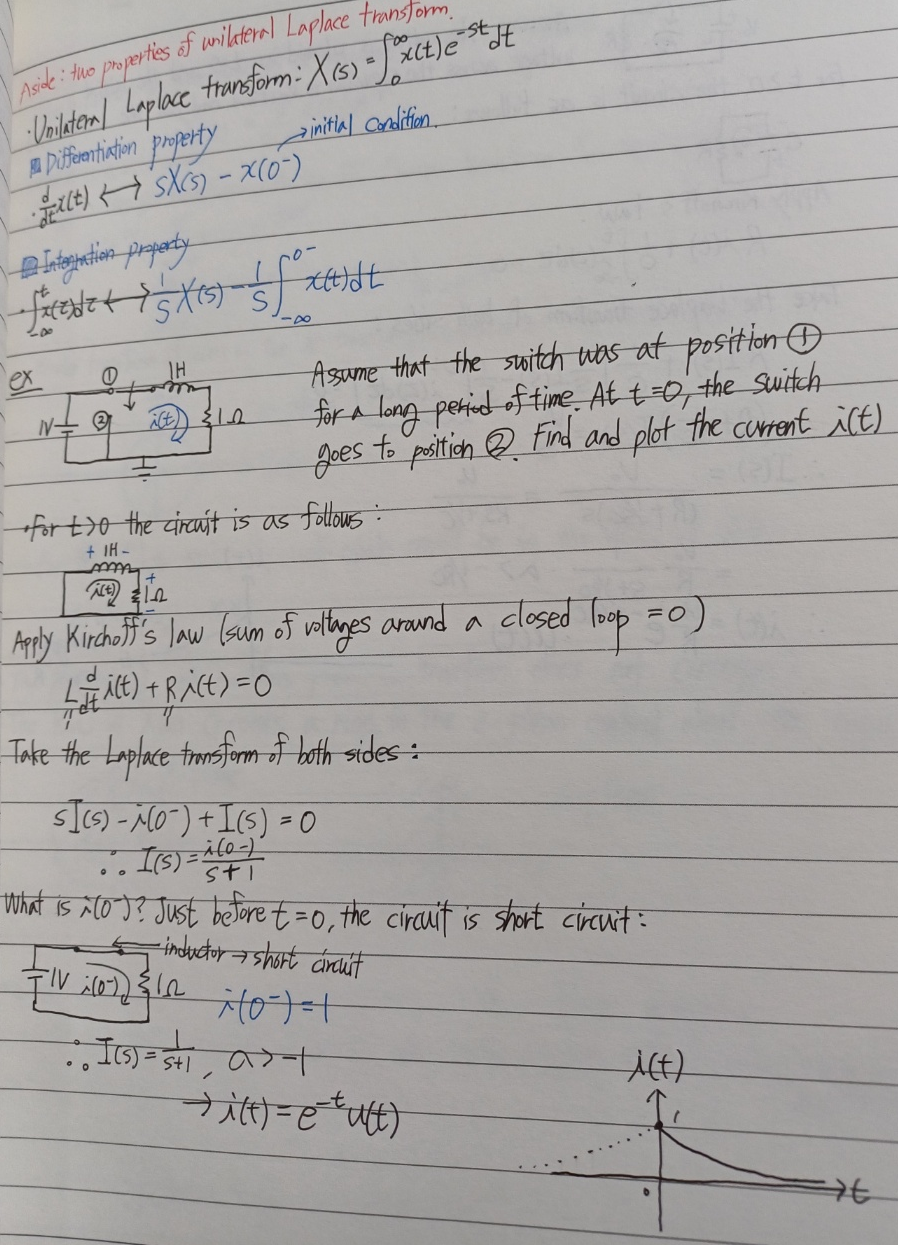 Aside: two properties of unilateral Laplace transform.
·Unilateral Laplace transform: X(s) = ∫₀^∞ x(t)e^{-st}dt
Differentiation property → initial condition.
· d/dt x(t) ⟷ sX(s) - x(0⁻)
Integration property
· ∫_{-∞}^{t} x(τ)dτ ⟷ 1/s X(s) - 1/s ∫_{-∞}^{0⁻} x(t)dt
ex
① 1H
1V ② i(t) 1Ω
Assume that the switch was at position ①
for a long period of time. At t=0, the switch
goes to position ②. Find and plot the current i(t)
·for t>0 the circuit is as follows:
+ 1H -
i(t) + 1Ω -
Apply Kirchoff's law (sum of voltages around a closed loop = 0)
L d/dt i(t) + R i(t) = 0
" "
1 1
Take the Laplace transform of both sides:
sI(s) - i(0⁻) + I(s) = 0
∴ I(s) = i(0⁻)/(s+1)
What is i(0⁻)? Just before t=0, the circuit is short circuit:
inductor → short circuit
1V i(0⁻) 1Ω
i(0⁻) = 1
∴ I(s) = 1/(s+1), a > -1
→ i(t) = e^{-t}u(t)
i(t)
1
0
t